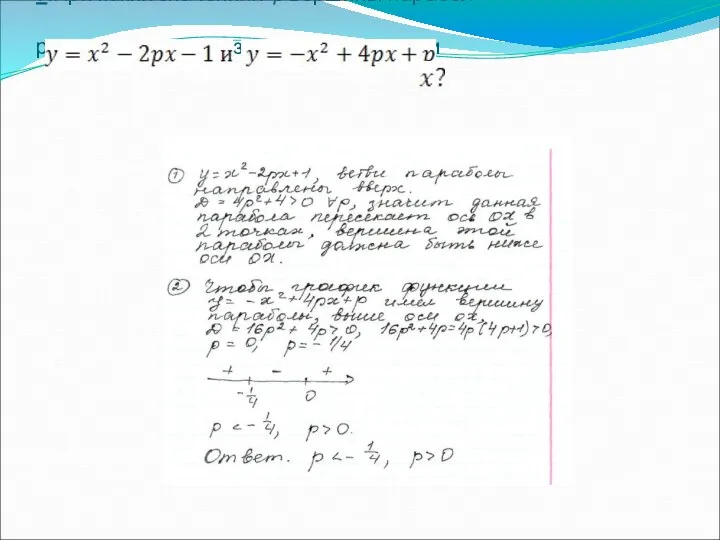 y = x² − 2px − 1 и y = −x² + 4px + p
x?
① y=x²-2px+1, ветви параболы
направлены вверх.
D = 4p²+4>0 ∀p, значит данная
парабола пересекает ось OX в
2 точках, вершина этой
параболы должна быть ниже
оси OX.
② Чтобы график функции
y= -x²+4px+p имел вершину
параболы, выше оси ox,
D = 16p²+ 4p> 0, 16p²+4p=4p(4p+1)>0,
p = 0, p= - 1/4
+ - +
-1/4 0
p < - 1/4, p>0.
Ответ. p<- 1/4, p>0